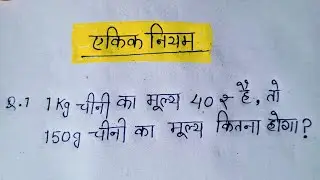 एकिक नियम
Q.1 1 Kg चीनी का मूल्य 40 ₹ है, तो
150g चीनी का मूल्य कितना होगा?